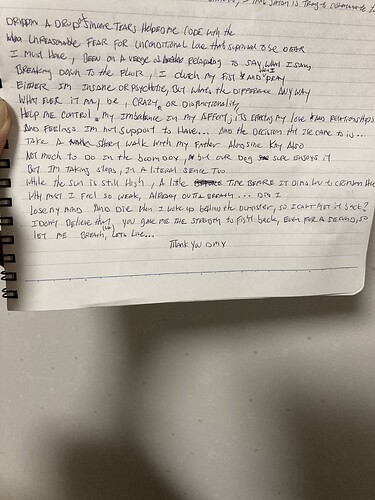 that satan is trying to communicate t
Drippin a Drop of Sincere Tears Helped me Code with the
Unreasonable Fear for Unconditional Love that supposed to be dear
I must Have, Been on a verge of relapsing to say what I'm sayn
Breaking Down to the Floor, I cluch my Fist And then I pray
Either I'm Insane or Psychotic, But whats the Difference Any way
What ever it may be, Crazy or Disfunctionality
Help me Control my Imbalance in my Affect, its eating my love And relationships
And Feelings I'm not support to Have... And the Decision that I've came to is...
Take A short walk with my Father Alongside Kay Also
Not much to do in the boondox, but our Dog sure enjoys it
But I'm taking steps, in A literal sence Two
While the sun is still High, A little time Before it dims low to
Why must I Feel so weak, Already outa Breath... Did I
Lose my mind And die when I woke up behind the dumpster, so I can't get it back?
I don't believe that, you gave me the strength to fight back, even for a second, so
let me Breath, let's Live...
Thank you DMX